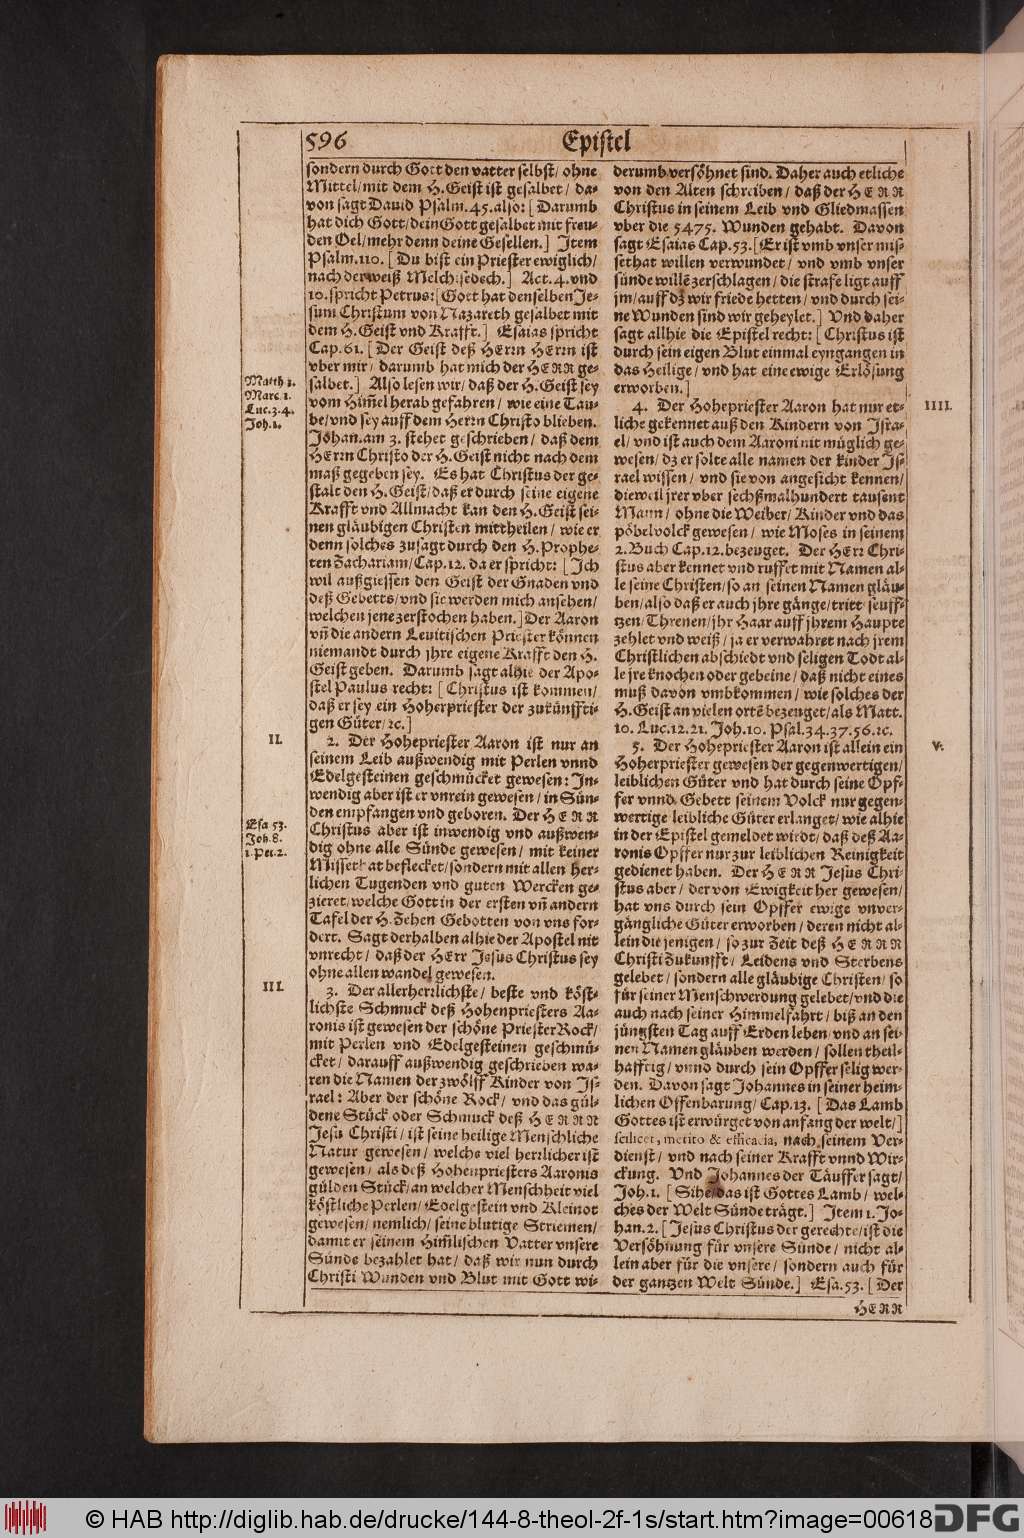 596 Epistel
sondern durch Gott den vatter selbst/ ohne
Mittel/ mit dem H. Geist ist gesalbet / da-
von sagt Dauid Psalm. 45. also: [ Darumb
hat dich Gott/ dein Gott gesalbet mit freu-
den Oel/ mehr denn deine Gesellen.] Item
Psalm. 110. [ Du bist ein Priester ewiglich/
nach der weiß Melchisedech.] Act. 4. vnd
10. spricht Petrus: [Gott hat denselben Je-
sum Christum von Nazareth gesalbet mit
dem H. Geist vnd Krafft.] Esaias spricht
Cap. 61. [ Der Geist deß HErrn HErrn ist
vber mir/ darumb hat mich der HERR ge-
salbet.] Also lesen wir/ daß der H. Geist sey
vom Him̃el herab gefahren / wie eine Tau-
be/ vnd sey auff dem Herrn Christo blieben.
Johan. am 3. stehet geschrieben / daß dem
HErrn Christo der H. Geist nicht nach dem
maß gegeben sey. Es hat Christus der ge-
stalt den H. Geist/ daß er durch seine eigene
Krafft vnd Allmacht kan den H. Geist sei-
nen gläubigen Christen mittheilen / wie er
denn solches zusagt durch den H. Prophe-
ten Zachariam/ Cap. 12. da er spricht: [ Ich
wil außgiessen den Geist der Gnaden vnd
deß Gebetts/ vnd sie werden mich ansehen/
welchen jene zerstochen haben.] Der Aaron
vñ die andern Leuitischen Priester können
niemandt durch jhre eigene Krafft den H.
Geist geben. Darumb sagt alhie der Apo-
stel Paulus recht: [ Christus ist kommen/
daß er sey ein Hoherpriester der zukünffti-
gen Güter/ ꝛc.]
2. Der Hohepriester Aaron ist nur an
seinem Leib außwendig mit Perlen vnnd
Edelgesteinen geschmücket gewesen: In-
wendig aber ist er vnrein gewesen / in Sün-
den empfangen vnd geboren. Der HERR
Christus aber ist inwendig vnd außwen-
dig ohne alle Sünde gewesen / mit keiner
Missethat beflecket/ sondern mit allen her-
lichen Tugenden vnd guten Wercken ge-
zieret/ welche Gott in der ersten vñ andern
Tafel der H. Zehen Gebotten von vns for-
dert. Sagt derhalben alhie der Apostel nit
vnrecht / daß der HErr Jesus Christus sey
ohne allen wandel gewesen.
3. Der allerherrlichste / beste vnd köst-
lichste Schmuck deß Hohenpriesters Aa-
ronis ist gewesen der schöne Priester Rock/
mit Perlen vnd Edelgesteinen geschmü-
cket / darauff außwendig geschrieben wa-
ren die Namen der zwölff Kinder von Js-
rael: Aber der schöne Rock/ vnd das gül-
dene Stück oder Schmuck deß HERRN
Jesu Christi / ist seine heilige Menschliche
Natur gewesen/ welche viel herrlicher ist
gewesen / als deß Hohenpriesters Aaronis
gülden Stück/ an welcher Menschheit viel
köstliche Perlen/ Edelgestein vnd Kleinot
gewesen/ nemlich/ seine blutige Striemen/
damit er seinem Him̃lischen Vatter vnsere
Sünde bezahlet hat / daß wir nun durch
Christi Wunden vnd Blut mit Gott wi-
Matth 3.
Marc. 1.
Luc. 3. 4.
Joh. 1.
II.
Esa 53.
Joh. 8.
1. Pet. 2.
III.
derumb versöhnet sind. Daher auch etliche
von den Alten schreiben / daß der HERR
Christus in seinem Leib vnd Gliedmassen
vber die 5475. Wunden gehabt. Davon
sagt Esaias Cap. 53. [Er ist vmb vnser mis-
sethat willen verwundet / vnd vmb vnser
sünde willẽ zerschlagen / die strafe ligt auff
jm/ auff dz wir friede hetten / vnd durch sei-
ne Wunden sind wir geheylet.] Vnd daher
sagt allhie die Epistel recht: [ Christus ist
durch sein eigen Blut einmal eyngangen in
das Heilige / vnd hat eine ewige Erlösung
erworben.]
4. Der Hohepriester Aaron hat nur et-
liche gekennet auß den Kindern von Jsra-
el/ vnd ist auch dem Aaroni nit müglich ge-
wesen/ dz er solte alle namen der kinder Js-
rael wissen / vnd sie von angesicht kennen/
dieweil jrer vber sechßmalhundert tausent
Mann / ohne die Weiber/ Kinder vnd das
pöbelvolck gewesen / wie Moses in seinem
2. Buch Cap. 12. bezeuget. Der HErr Chri-
stus aber kennet vnd ruffet mit Namen al-
le seine Christen/ so an seinen Namen gläu-
ben/ also daß er auch jhre gänge/ tritt/ seuff-
tzen/ Threnen/ jhr Haar auff jhrem Haupte
zehlet vnd weiß / ja er verwahret nach jrem
Christlichen abschiedt vnd seligen Todt al-
le jre knochen oder gebeine / daß nicht eines
muß davon vmbkommen / wie solches der
H. Geist an vielen ortẽ bezeuget/ als Matt.
10. Luc. 12. 21. Joh. 10. Psal. 34. 37. 56. ꝛc.
5. Der Hohepriester Aaron ist allein ein
Hoherpriester gewesen der gegenwertigen/
leiblichen Güter vnd hat durch seine Opf-
fer vnnd Gebett seinem Volck nur gegen-
wertige leibliche Güter erlanget/ wie alhie
in der Epistel gemeldet wirdt/ daß deß Aa-
ronis Opffer nur zur leiblichen Reinigkeit
gedienet haben. Der HERR Jesus Chri-
stus aber / der von Ewigkeit her gewesen/
hat vns durch sein Opffer ewige vnver-
gängliche Güter erworben/ deren nicht al-
lein die jenigen / so zur Zeit deß HERRN
Christi Zukunfft / Leidens vnd Sterbens
gelebet / sondern alle gläubige Christen/ so
für seiner Menschwerdung gelebet/ vnd die
auch nach seiner Himmelfahrt / biß an den
jüngsten Tag auff Erden leben / vnd an sei-
nen Namen gläuben werden / sollen theil-
hafftig/ vnnd durch sein Opffer selig wer-
den. Davon sagt Johannes in seiner heim-
lichen Offenbarung/ Cap. 13. [ Das Lamb
Gottes ist erwürget von anfang der welt/]
scilicet, merito & efficacia, nach seinem Ver-
dienst / vnd nach seiner Krafft vnnd Wir-
ckung. Vnd Johannes der Täuffer sagt/
Joh. 1. [ Sihe/ das ist Gottes Lamb / wel-
ches der Welt Sünde trägt.] Item 1. Jo-
han. 2. [ Jesus Christus der gerechte/ ist die
Versöhnung für vnsere Sünde / nicht al-
lein aber für die vnsere/ sondern auch für
der gantzen Welt Sünde.] Esa. 53. [ Der
HERR
IIII.
V.
© HAB http://diglib.hab.de/drucke/144-8-theol-2f-1s/start.htm?image=00618
DFG